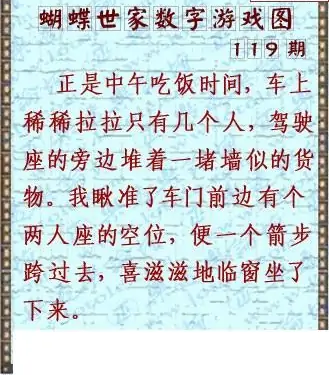 蝴蝶世家数字游戏图
119期
正是中午吃饭时间，车上
稀稀拉拉只有几个人，驾驶
座的旁边堆着一堵墙似的货
物。我瞅准了车门前边有个
两人座的空位，便一个箭步
跨过去，喜滋滋地临窗坐了
下来。